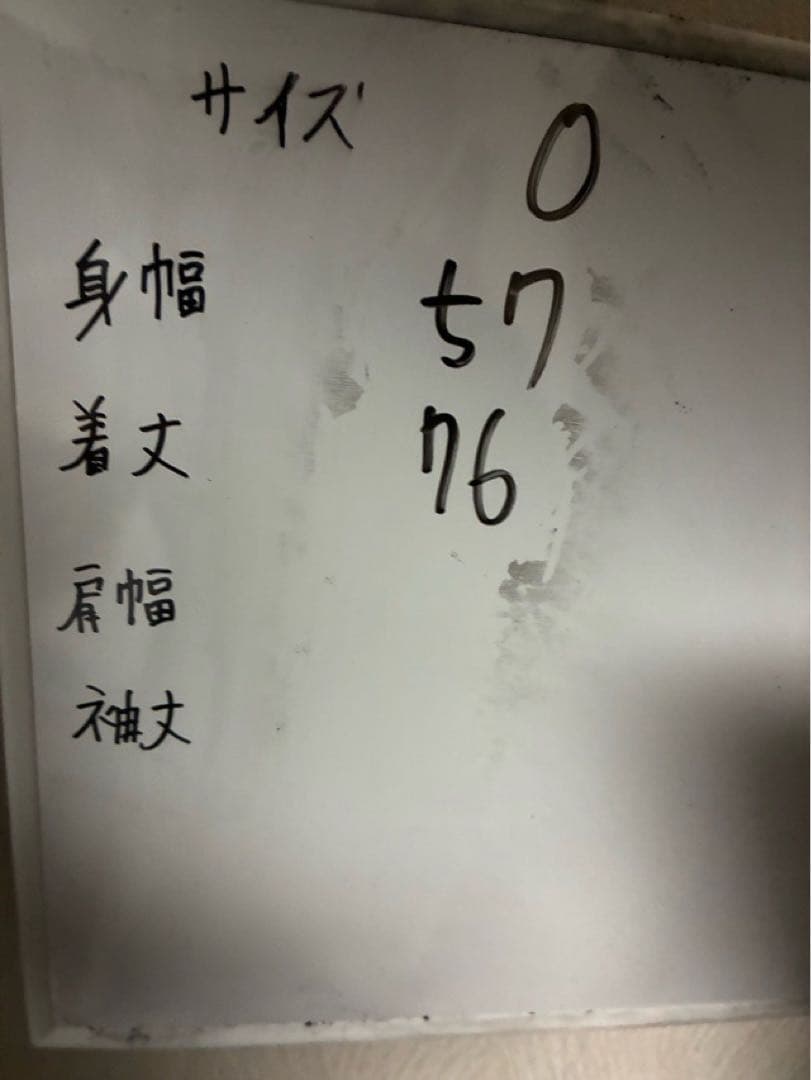 サイズ 0
身幅 57
着丈 76
肩幅
袖丈